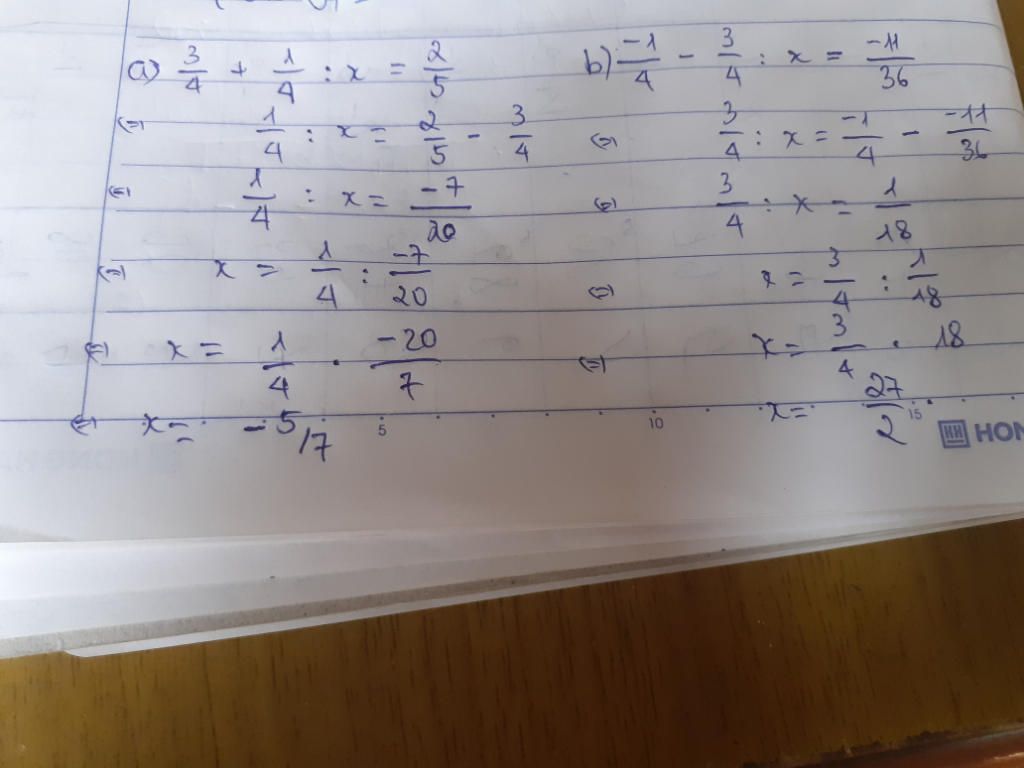 a) 3/4 + 1/4 : x = 2/5
⇔ 1/4 : x = 2/5 - 3/4
⇔ 1/4 : x = -7/20
⇔ x = 1/4 : -7/20
⇔ x = 1/4 . -20/7
⇔ x = -5/7
b) -1/4 - 3/4 : x = -11/36
⇔ 3/4 : x = -1/4 - -11/36
⇔ 3/4 : x = 1/18
⇔ x = 3/4 : 1/18
⇔ x = 3/4 . 18
x = 27/2 .
5 10 15
HON